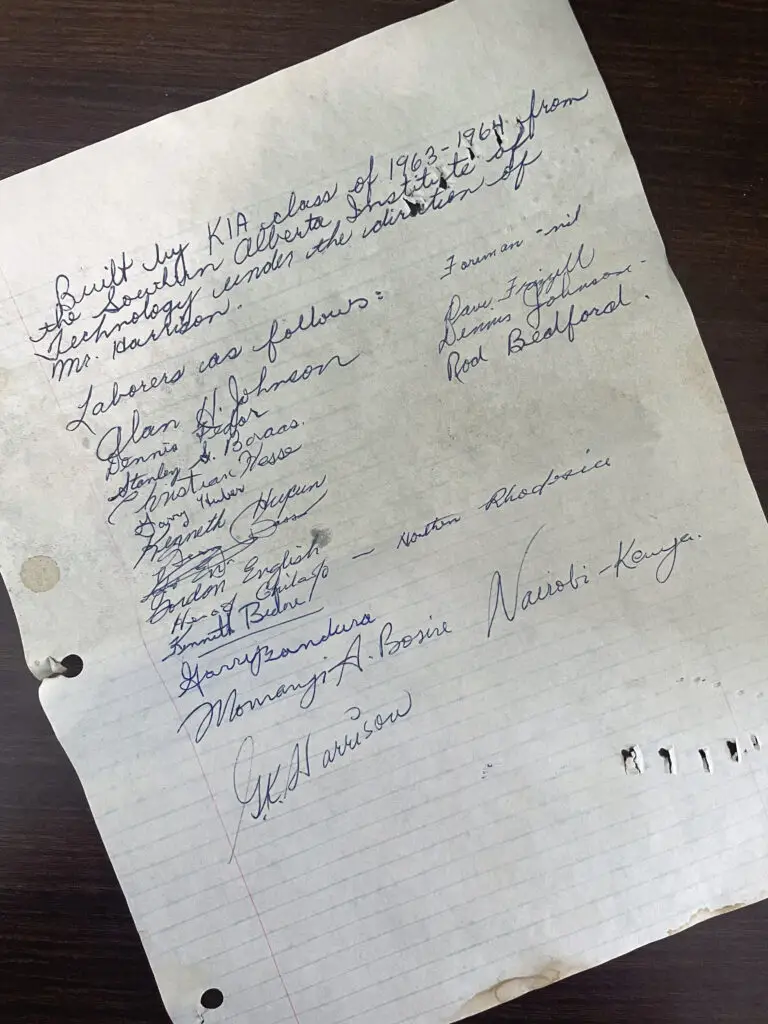 Built by KIA class of 1963-1964 from
the Southern Alberta Institute of
Technology under the direction of
Mr. Harrison.
Laborers as follows:
Foreman - nil
Alan H. Johnson
Dennis Fedor
Stanley S. Boraas.
Christian Hesse
Garry Huber
Kenneth Hupun
Gordon English
Northern Rhodesia
Kenneth Bedore
Garry Bandura
Momanyi A. Bosire Nairobi-Kenya.
G.K. Harrison
Dave Frizzell
Dennis Johnson.
Rod Bedford.